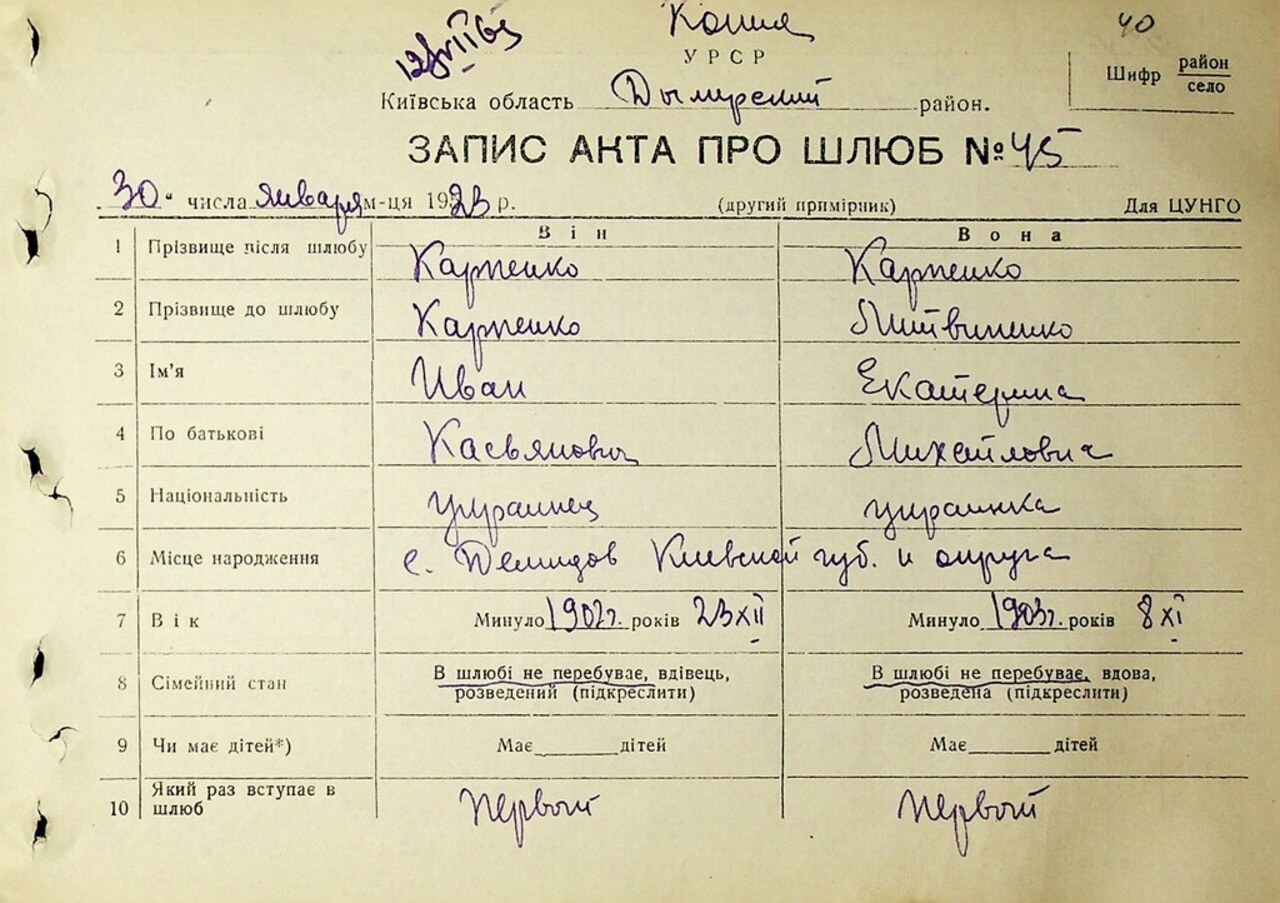 Копия 40
12/VII 65
УРСР
Шифр район село
Київська область Дымерский район.
ЗАПИС АКТА ПРО ШЛЮБ № 45
30 " числа января м-ця 1923 р. (другий примірник) Для ЦУНГО
Він Вона
1 Прізвище після шлюбу Карпенко Карпенко
2 Прізвище до шлюбу Карпенко Литвиненко
3 Ім'я Иван Екатерина
4 По батькові Касьянович Михайловна
5 Національність украинец украинка
6 Місце народження с. Демидов Киевской губ. и округа
7 Вік Минуло 1902г. років 23 XII Минуло 1903г. років 8 XI
8 Сімейний стан В шлюбі не перебуває, вдівець, розведений (підкреслити) В шлюбі не перебуває, вдова, розведена (підкреслити)
9 Чи має дітей*) Має дітей Має дітей
10 Який раз вступає в шлюб первый первый